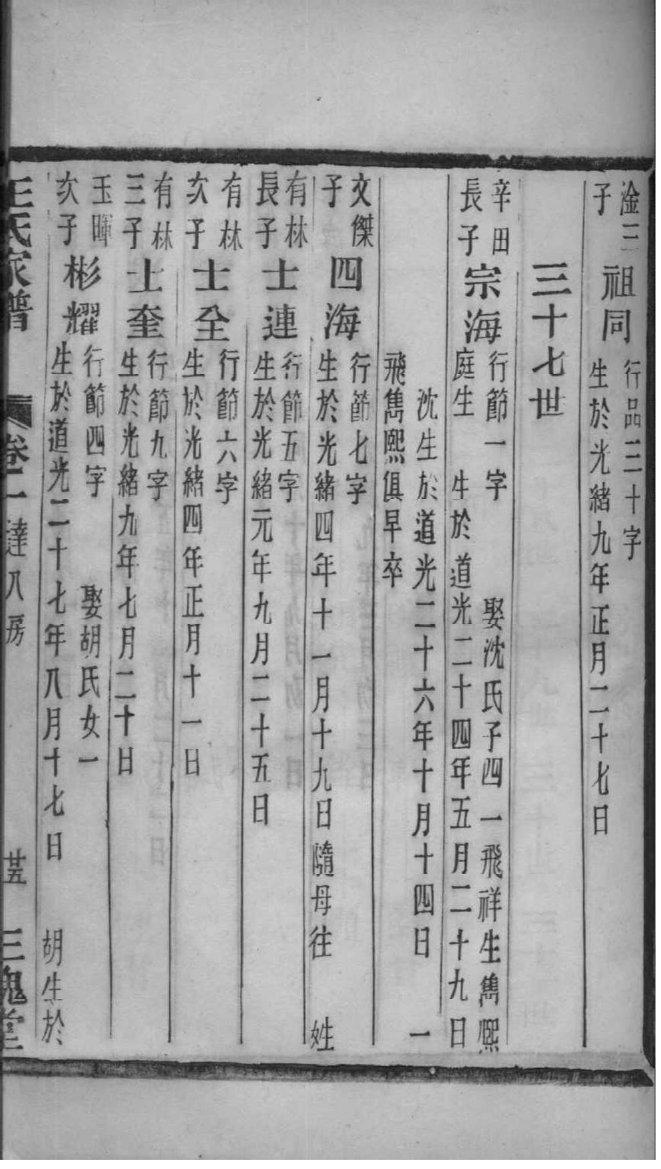 淦三
子
祖同
行品三十字
生於光緒九年正月二十七日
三十七世
辛田
長子
宗海
行節一字 娶沈氏子四一飛祥生雋熙
庭生 生於道光二十四年五月二十九日
沈生於道光二十六年十月十四日 一
飛雋熙俱早卒
文傑
子
四海
行節七字
生於光緒四年十一月十九日隨母往 姓
有林
長子
士連
行節五字
生於光緒元年九月二十五日
有林
次子
士全
行節六字
生於光緒四年正月十一日
有林
三子
士奎
行節九字
生於光緒九年七月二十日
玉暉
次子
彬耀
行節四字 娶胡氏女一
生於道光二十七年八月十七日 胡生於
王氏家譜 卷二 達八房 廿五 三槐堂